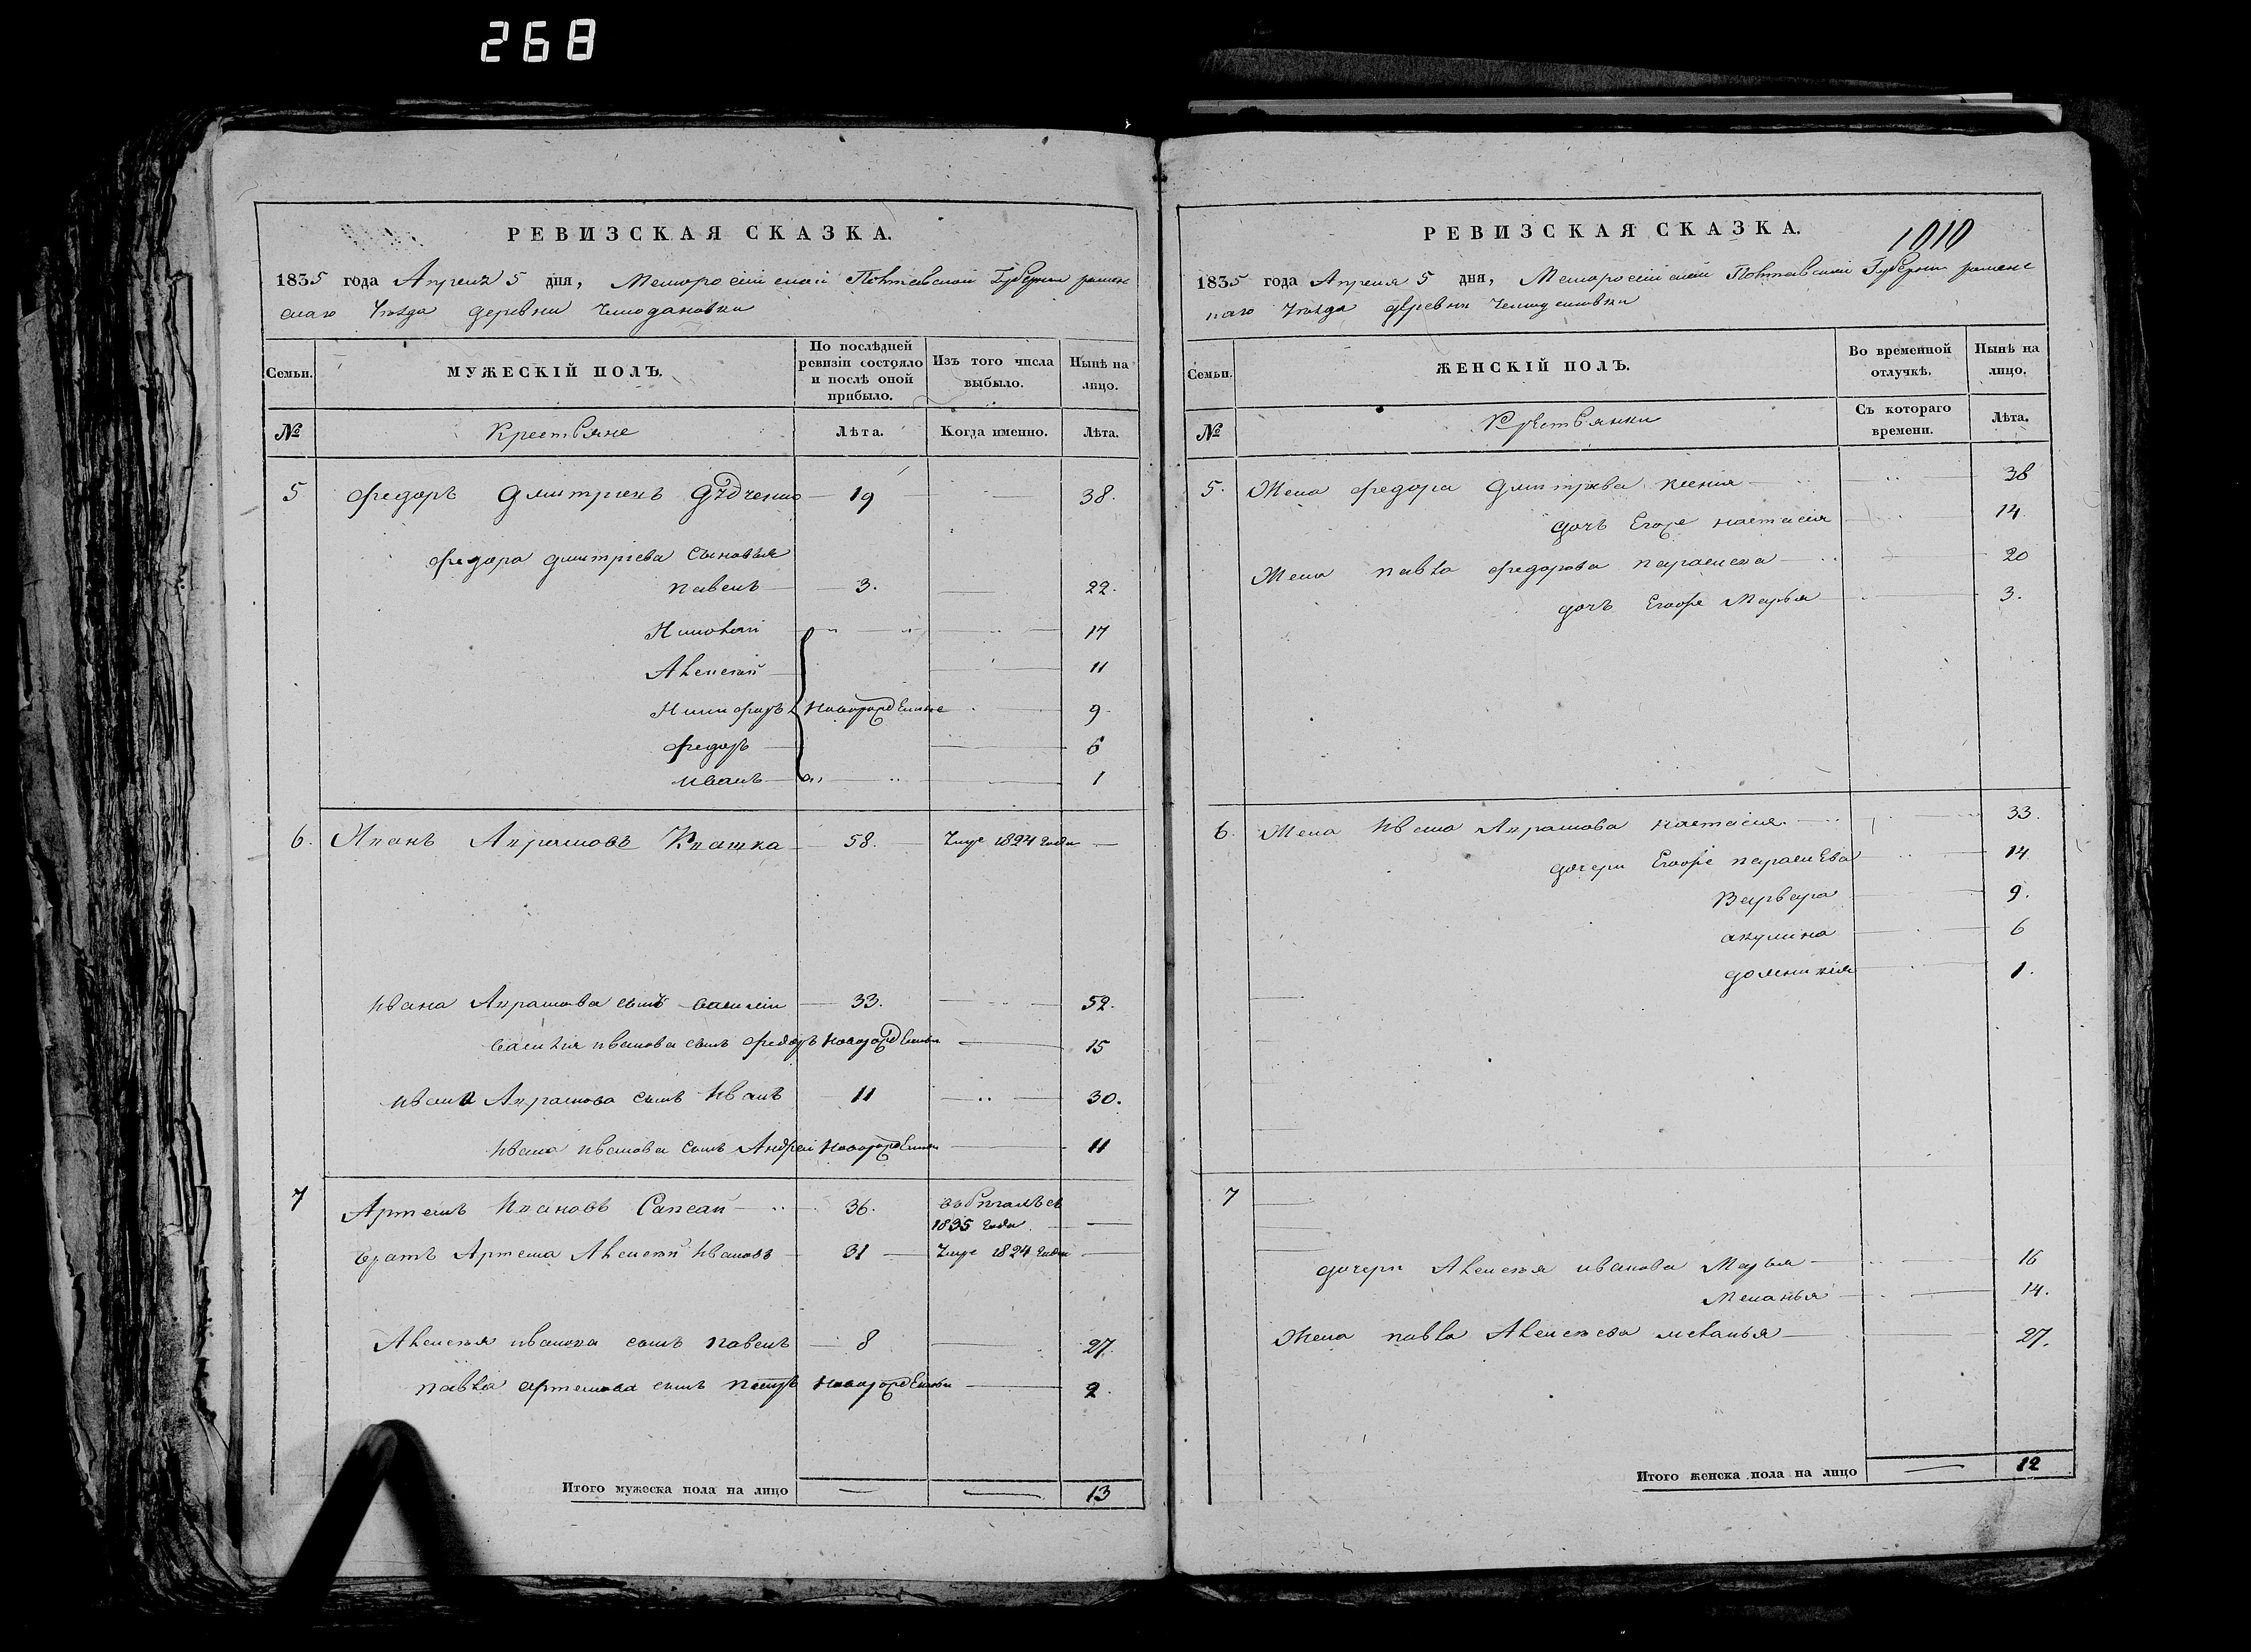 268
РЕВИЗСКАЯ СКАЗКА.
1835 года Апреля 5 дня, Малоросійской Полтавской Губерніи ромен
скаго Уѣзда деревни Чемодановки
Семьи.
МУЖЕСКІЙ ПОЛЪ.
По послѣдней ревизіи состояло и послѣ оной прибыло.
Изъ того числа выбыло.
Нынѣ на лицо.
№
Крестьяне
Лѣта.
Когда именно.
Лѣта.
5 Федоръ Дмитріевъ 19 38.
Федора дмитріева Сыновья
павелъ 3. 22.
Николай 17
Алексѣй 11
Никифоръ новорожденные 9
федоръ 6
иванъ 1
6. Иванъ Абрамовъ 58. Умре 1824 года
ивана Абрамова сынъ василій 33. 52.
василія иванова сынъ федоръ новорожденны 15
ивана Абрамова сынъ Иванъ 11 30.
Ивана иванова сынъ Андрей новорожденны 11
7 Артемъ Ивановъ Сапсай 36. 1835 года
братъ Артема Алексѣй Ивановъ 31 Умре 1824 года
Алексѣя иванова сынъ павелъ 8 27.
павла артемова сынъ петръ новорожденны 2.
Итого мужеска пола на лицо 13
РЕВИЗСКАЯ СКАЗКА.
1010
1835 года Апреля 5 дня, Малоросійской Полтавской Губерніи роменс
каго Уѣзда деревни
Семьи.
ЖЕНСКІЙ ПОЛЪ.
Во временной отлучкѣ.
Нынѣ на лицо.
№
Крестьянки
Съ котораго времени.
Лѣта.
5. Жена федора Дмитріева ксенія 38
дочь Егоре настасія 14
Жена павла федорова параскева 20
дочь Егоре Марья 3.
6. Жена Ивана Абрамова настасія. 33.
дочери Егоре параскева 14
Варвара 9.
акулина 6
домникія 1.
7
дочери Алексѣя иванова Марья 16
Меланья 14.
Жена павла Алексѣева меланья 27.
Итого женска пола на лицо 12